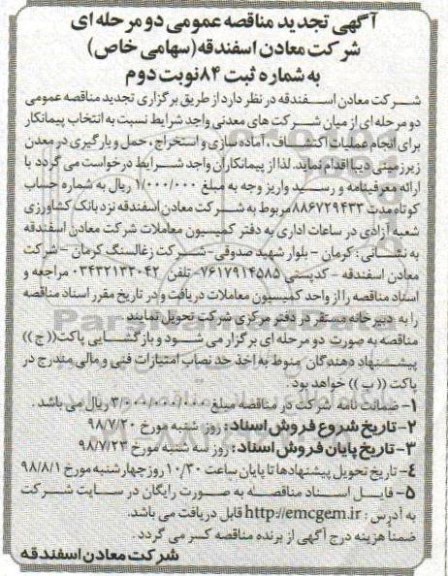 آگهی تجدید مناقصه عمومی دو مرحله ای
شرکت معادن اسفندقه (سهامی خاص)
به شماره ثبت ۸۴ نوبت دوم
شرکت معادن اسفندقه در نظر دارد از طریق برگزاری تجدید مناقصه عمومی
دو مرحله ای از میان شرکت های معدنی واجد شرایط نسبت به انتخاب پیمانکار
برای انجام عملیات اکتشاف، آماده سازی و استخراج، حمل و بارگیری در معدن
زیرزمینی دیبا اقدام نماید. لذا از پیمانکاران واجد شرایط درخواست می گردد با
ارائه معرفینامه و رسید واریز وجه به مبلغ ۱/۰۰۰/۰۰۰ ریال به شماره حساب
کوتاه مدت ۸۸۶۷۲۹۴۳۳ مربوط به شرکت معادن اسفندقه نزد بانک کشاورزی
شعبه آزادی در ساعات اداری به دفتر کمیسیون معاملات شرکت معادن اسفندقه
به نشانی: کرمان - بلوار شهید صدوقی - شرکت زغالسنگ کرمان - شرکت
معادن اسفندقه - کدپستی ۷۶۱۷۹۱۴۵۸۵ - تلفن ۰۳۴۳۲۱۳۳۰۴۲ مراجعه و
اسناد مناقصه را از واحد کمیسیون معاملات دریافت و در تاریخ مقرر اسناد مناقصه
را به دبیرخانه مستقر در دفتر مرکزی شرکت تحویل نمایند.
مناقصه به صورت دو مرحله ای برگزار می شود و بازگشایی پاکت ((ج))
پیشنهاد دهندگان منوط به اخذ حد نصاب امتیازات فنی و مالی مندرج در
پاکت ((ب)) خواهد بود.
۱- ضمانت نامه شرکت در مناقصه مبلغ ۳/۰۰۰/۰۰۰/۰۰۰ ریال می باشد.
۲- تاریخ شروع فروش اسناد: روز شنبه مورخ ۹۸/۷/۲۰
۳- تاریخ پایان فروش اسناد: روز سه شنبه مورخ ۹۸/۷/۲۳
۴- تاریخ تحویل پیشنهادها تا پایان ساعت ۱۰/۳۰ روز چهارشنبه مورخ ۹۸/۸/۱
۵- فایل اسناد مناقصه به صورت رایگان در سایت شرکت
به آدرس: http://emcgem.ir قابل دریافت می باشد.
ضمناً هزینه درج آگهی از برنده مناقصه کسر می گردد.
شرکت معادن اسفندقه
ParsNamadData